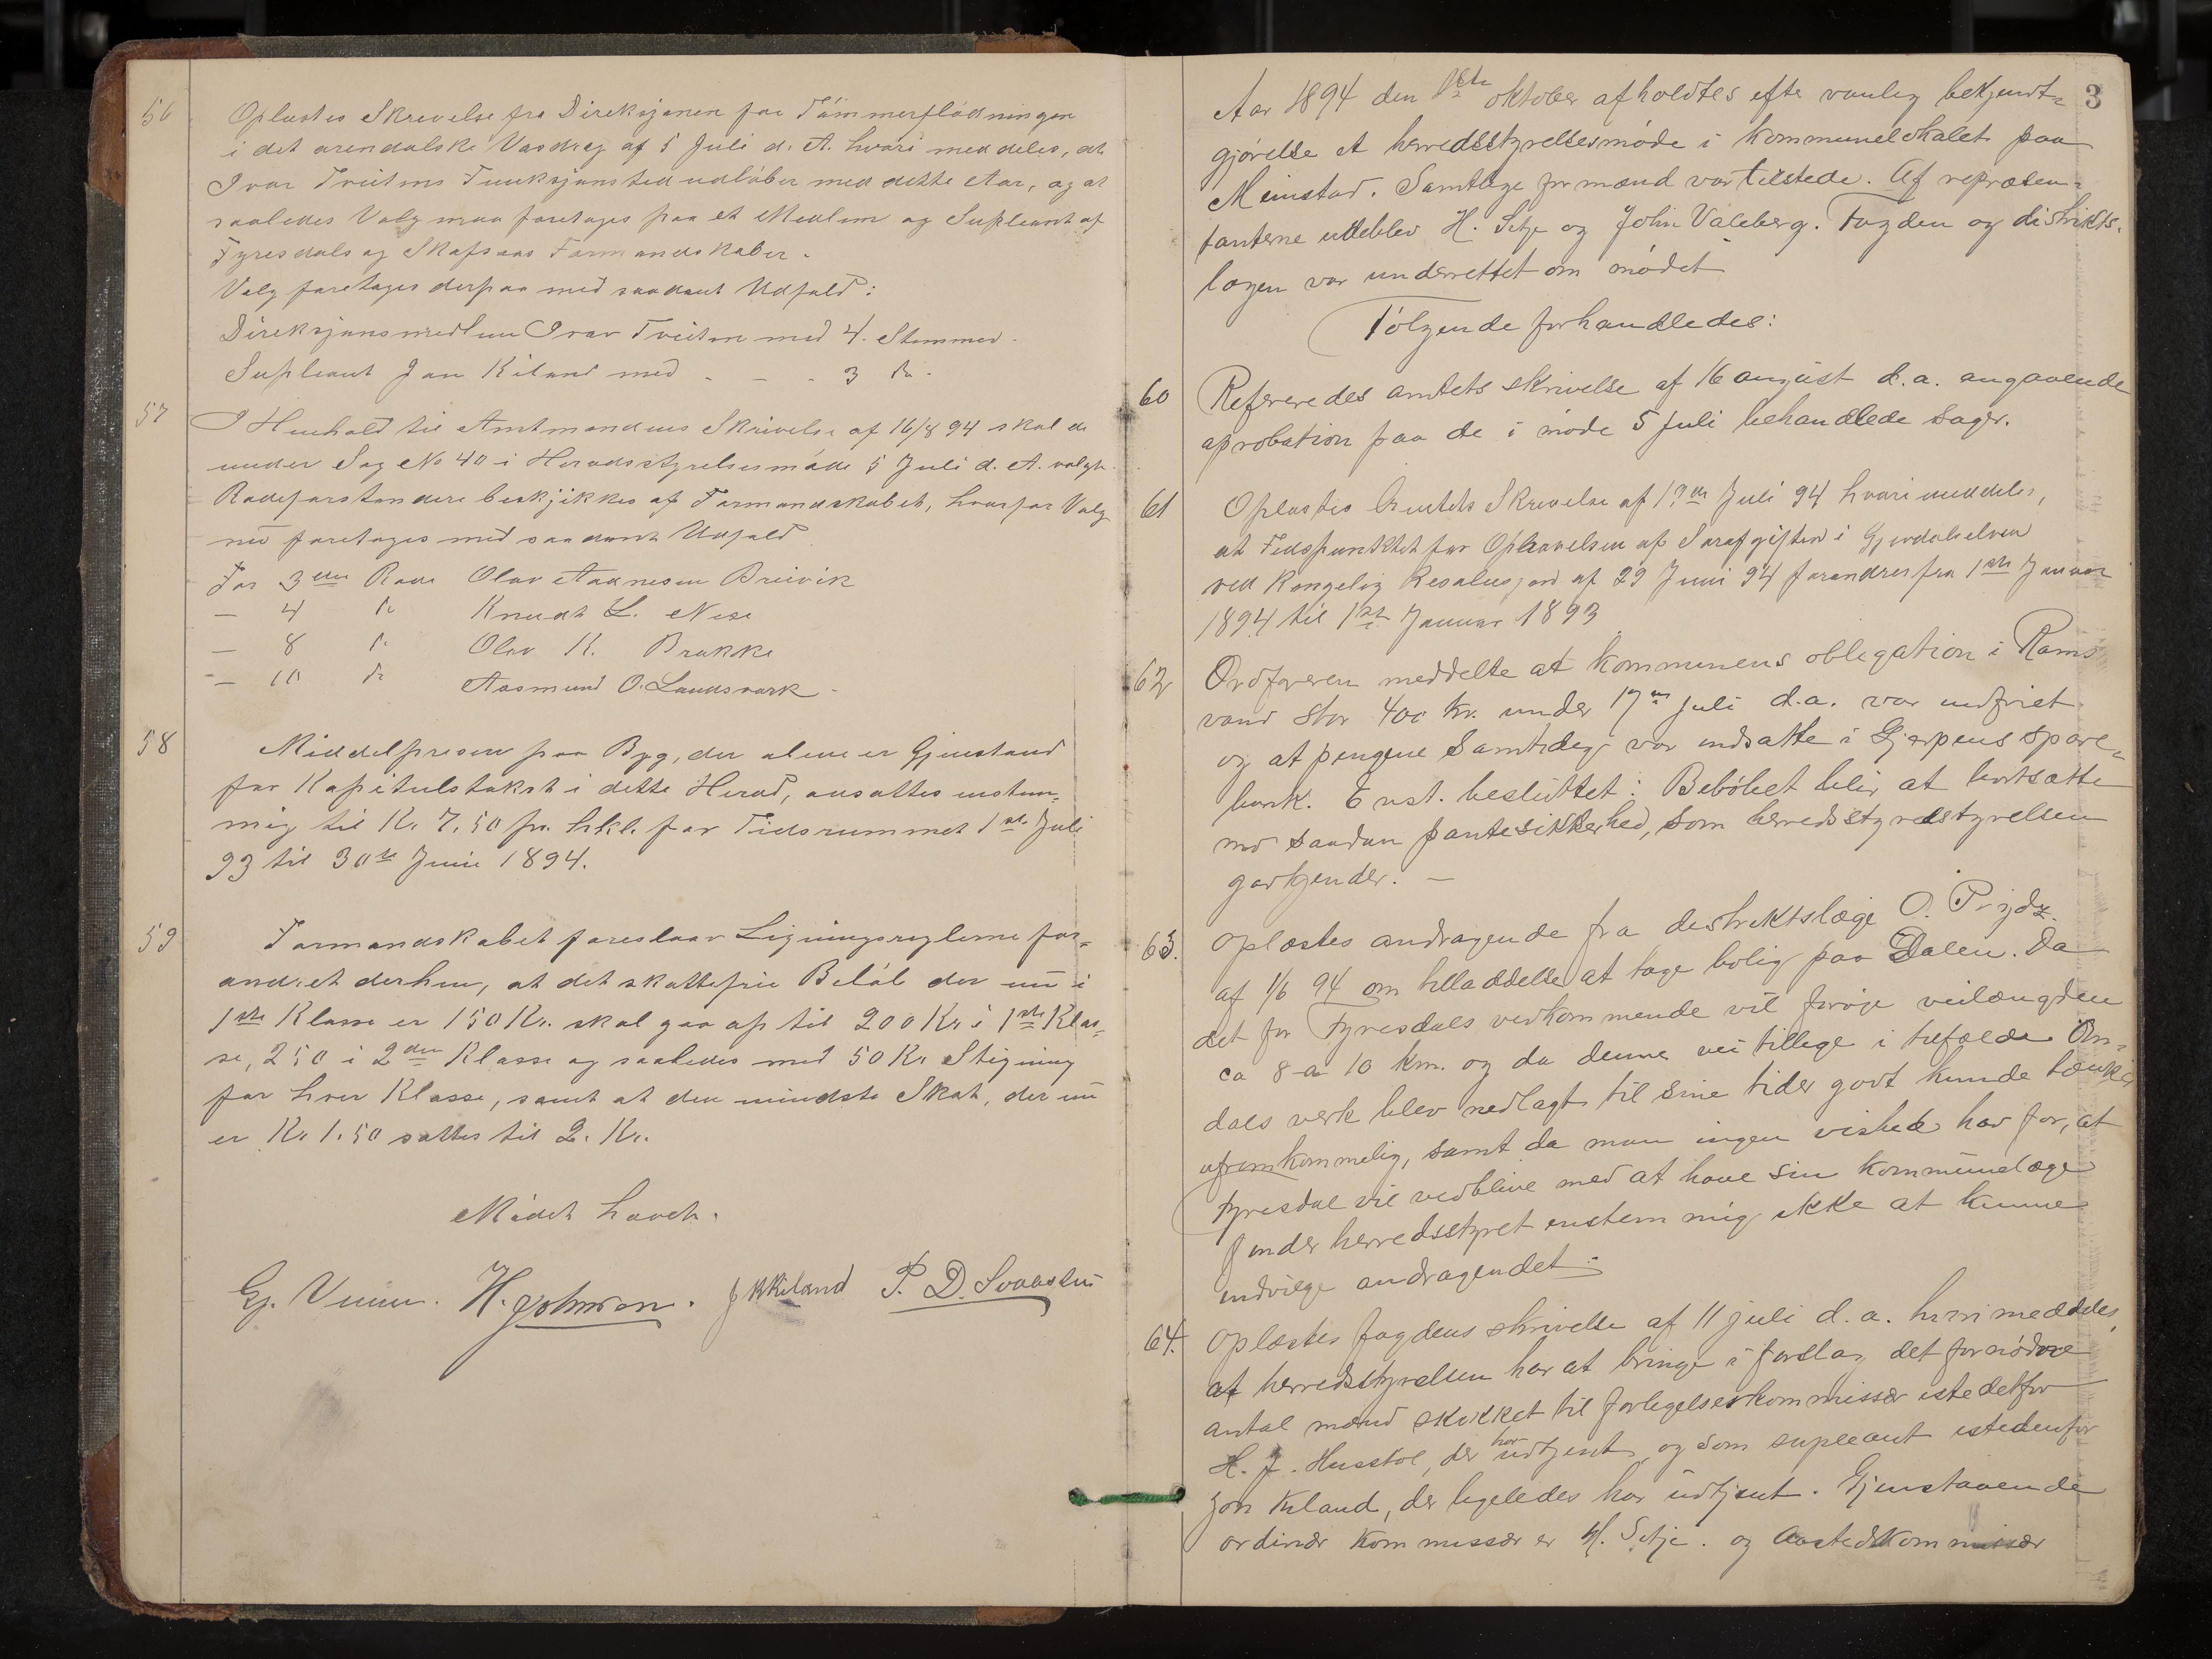 56
Oplæstes Skrivelse fra Direksjonen for Tømmerflødningen
i det arendalske Vasdrag af 5 Juli d. A. hvori meddeles, at
Ivar Tveitens Funksjonstid udløber med dette Aar, og at
saaledes Valg maa foretages paa et Medlem og Supleant af
Fyresdals og Skafsaas Formandskaber.
Valg foretages derpaa med saadant Udfald:
Direksjonsmedlem Ivar Tveiten med 4. Stemmer.
Supleant Jon Kiland med - - - 3 do -
57
I Henhold til Amtmandens Skrivelse af 16/8 94 skal de
under Sag No 40 i Heredsstyrelsesmøde 5 Juli d. A. valgte
Rodeforstandere beskjikkes af Formandskabet, hvorfor Valg
nu foretages med saadant Udfald
For 3die Rode Olav Aadnesen Breivik
— 4 do Knudt L. Nese
— 8 do Olav K. Brokke
— 10 do Aasmund O. Landsvark -
58
Middelprisen paa Byg, der alene er Gjenstand
for Kapitulstakst i dette Hered, ansattes enstem-
mig til Kr. 7,50 pr. hkl. for Tidsrummet 1ste Juli
93 til 30te Juni 1894.
59
Formandskabet foreslaar Ligningsreglerne for-
andret derhen, at det skattefrie Beløb der nu i
1ste Klasse er 150 Kr. skal gaa op til 200 Kr i 1ste Klas-
se, 250 i 2den Klasse og saaledes med 50 Kr Stigning
for hver Klasse, samt at den mindste Skat, der nu
er Kr 1.50 sættes til 2. Kr.
Mødet hævet.
Gj. H. Johnson. J K Kiland P. D.
3
Aar 1894 den 1ste oktober afholdtes efter vanlig bekjendt-
gjørelse et herredsstyrelsesmøde i kommunelokalet paa
Meinstad. Samtlige formænd var tilstede. Af repræsen-
tanterne udeblev H. Setje og John Valeberg. Fogden og distrikts-
lægen var underrettet om mødet
Følgende forhandledes:
60
Refereredes amtets skrivelse af 16 august d.a. angaaende
aprobation paa de i møde 5 juli behandlede sager.
61
Oplæstes Amtets Skrivelse af Juli 94 hvori meddeles,
at Tidspunktet for Ophævelsen af i
ved Kongelig Resolusjon af 29 Juni 94 forandres fra 1ste Januar
1894 til 1ste Januar 1893
62
Ordføreren meddelte at kommunens obligation i Rams
vand stor 400 kr. under 17de juli d.a. var indfriet
og at pengene samtidig var indsatte i Gjerpens spare-
bank. Enst. besluttet: Beløbet blir at bortsætte
mod saadan pantesikkerhed, som herredsstyrelsen
godkjender. —
63.
Oplæstes andragende fra destriktslæge O. Prydz.
af 1/6 94 om tilladelse at tage bolig paa Dalen. Da
det for Fyresdals vedkommende vil forøge veilængden
ca 8 a 10 km. og da denne vei tillige i tilfælde Om-
dals verk blev nedlagt til sine tider godt kunde tænkes
ufremkommelig, samt da man ingen vished har for, at
Fyresdal vil vedblive med at have sin kommunelæge
finder herredsstyret enstemmig ikke at kunne
indvilge andragendet.
64.
Oplæstes fogdens skrivelse af 11 juli d. a. hvori meddeles,
at herredsstyrelsen har at bringe i forslag det fornødne
antal mænd skikket til forligelseskommissær istedetfor
H. J. Husstøl, der har udtjent, og som supleant istedenfor
Jon Kiland, der ligeledes har udtjent. Gjenstaaende
ordinær kommissær er H. Setje. og Aastedskommissær